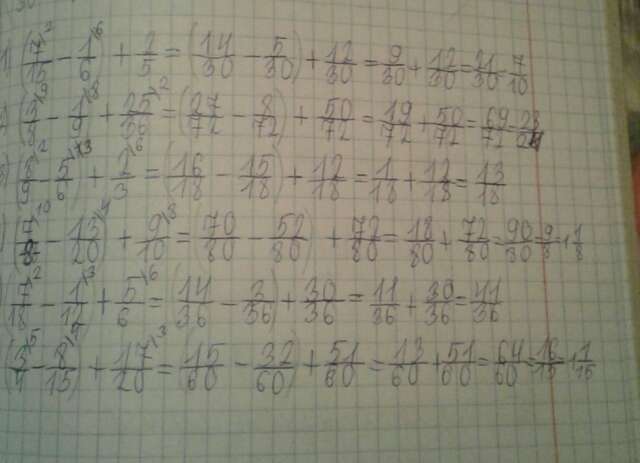 1) (7/15 - 1/6) + 2/5 = (14/30 - 5/30) + 12/30 = 9/30 + 12/30 = 21/30 = 7/10
(3/8 - 1/9) + 25/36 = (27/72 - 8/72) + 50/72 = 19/72 + 50/72 = 69/72 = 23/24
(8/9 - 5/6) + 2/3 = (16/18 - 15/18) + 12/18 = 1/18 + 12/18 = 13/18
(7/8 - 13/20) + 9/10 = (70/80 - 52/80) + 72/80 = 18/80 + 72/80 = 90/80 = 9/8 = 1 1/8
(7/18 - 1/12) + 5/6 = (14/36 - 3/36) + 30/36 = 11/36 + 30/36 = 41/36
(3/4 - 8/15) + 17/20 = (15/60 - 32/60) + 51/60 = 13/60 + 51/60 = 64/60 = 16/15 = 1 1/15